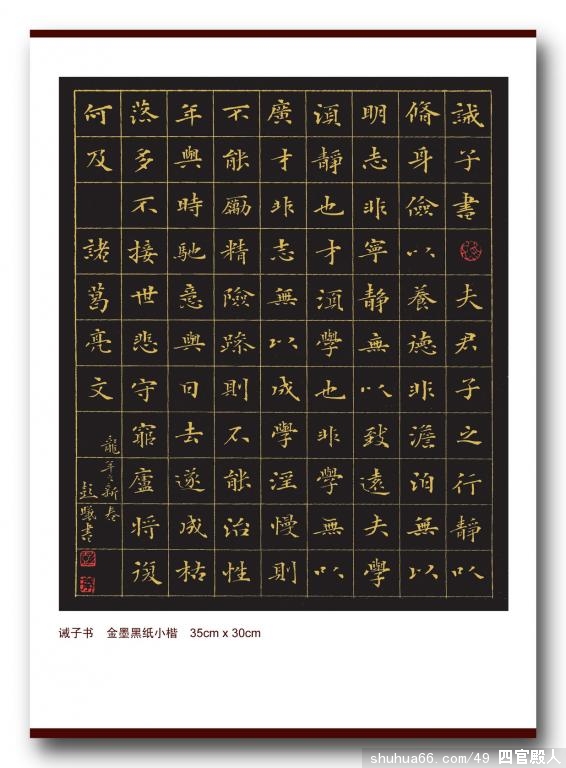 誡子書夫君子之行靜以
脩身儉以養德非澹泊無以
明志非寧靜無以致遠夫學
須靜也才須學也非學無以
廣才非志無以成學淫慢則
不能勵精險躁則不能治性
年與時馳意與日去遂成枯
落多不接世悲守窮廬將復
何及諸葛亮文
龍年之新春
書
诫子书 金墨黑纸小楷 35cm x 30cm
shuhua66.com/49 四官殿人